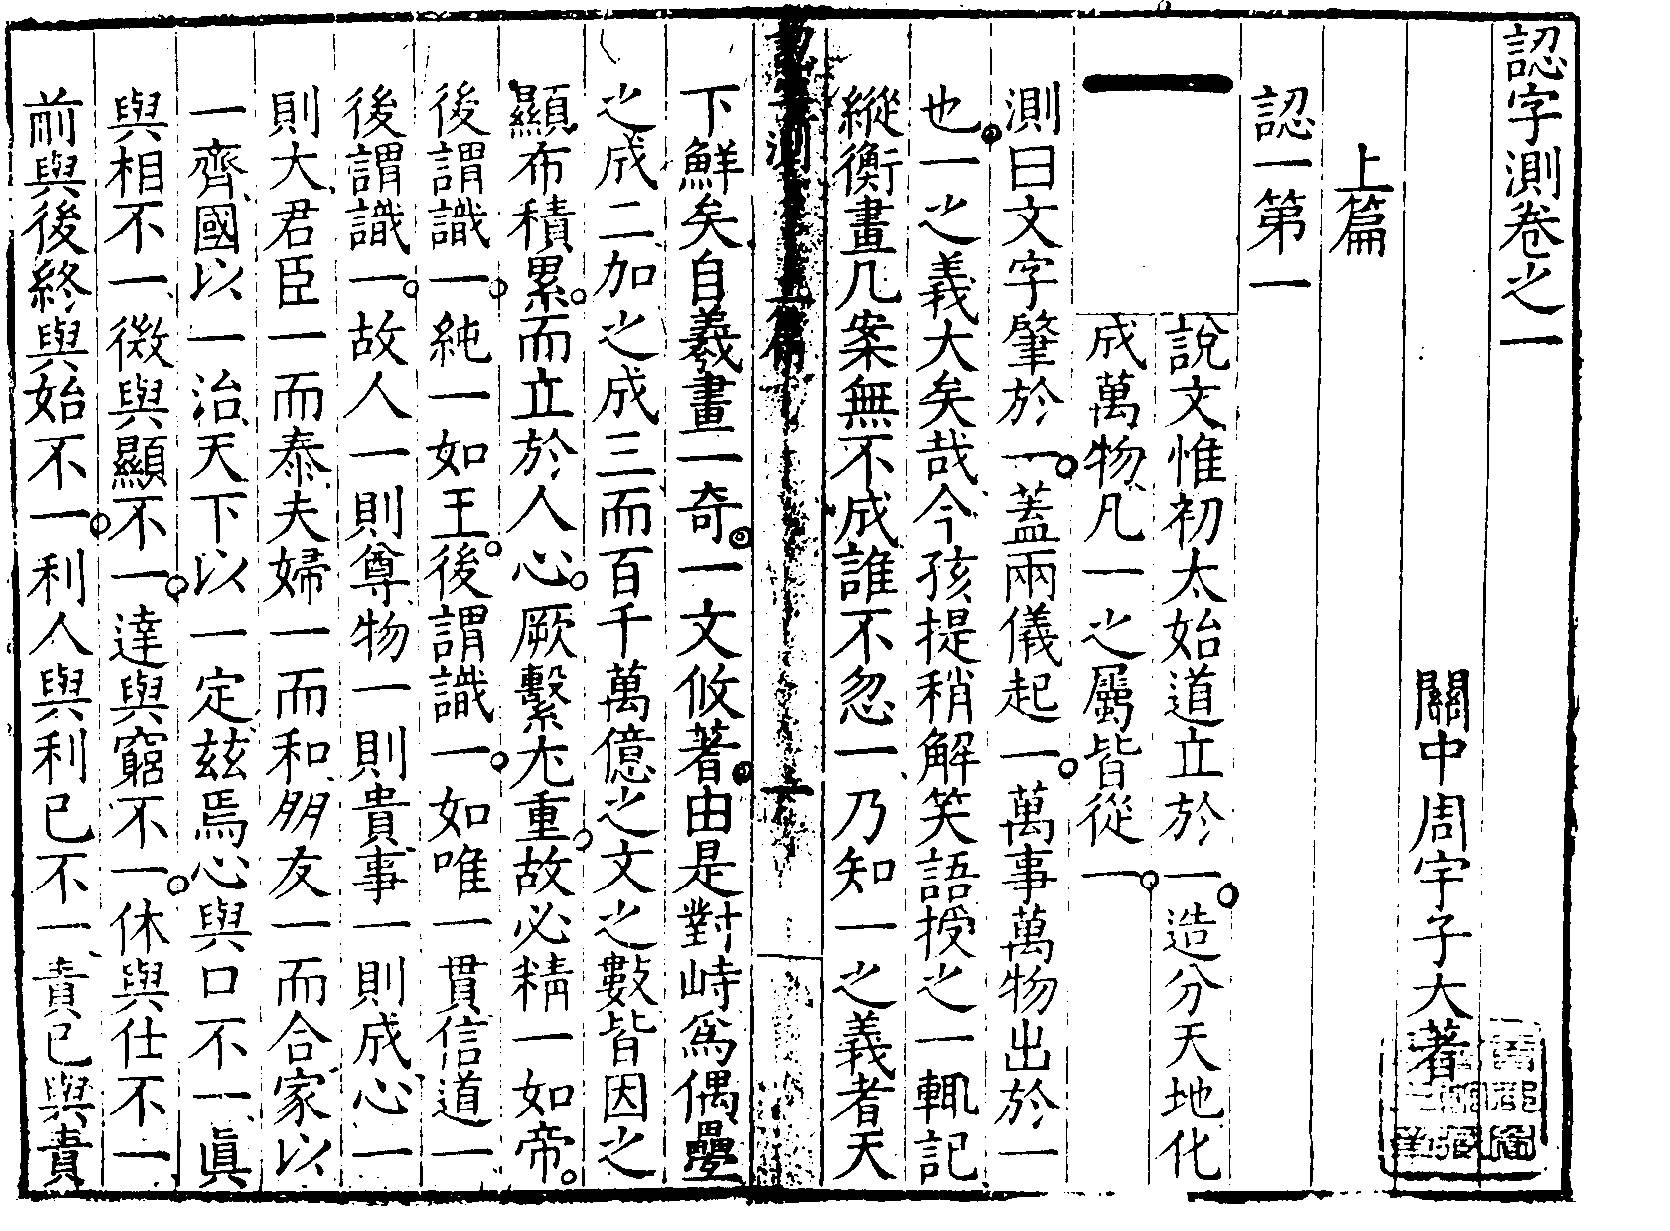 認字測卷之一
關中周宇子大著
上篇
認一第一
一
說文惟初太始道立於一造分天地化
成萬物凡一之屬皆從一
測曰文字肇於一蓋兩儀起一萬事萬物出於一
也一之義大矣哉今孩提稍解笑語授之一輒記
縱衡畫几案無不成誰不忽一乃知一之義者天
下鮮矣自羲畫一奇一文攸著由是對峙爲偶疊
之成二加之成三而百千萬億之文之數皆因之
顯布積累而立於人心厥繫尢重故必精一如帝
後謂識一純一如王後謂識一如唯一貫信道一
後謂識一故人一則尊物一則貴事一則成心一
則大君臣一而泰夫婦一而和朋友一而合家以
一齊國以一治天下以一定茲焉心與口不一眞
與相不一微與顯不一達與窮不一休與仕不一
前與後終與始不一利人與利已不一責已與責